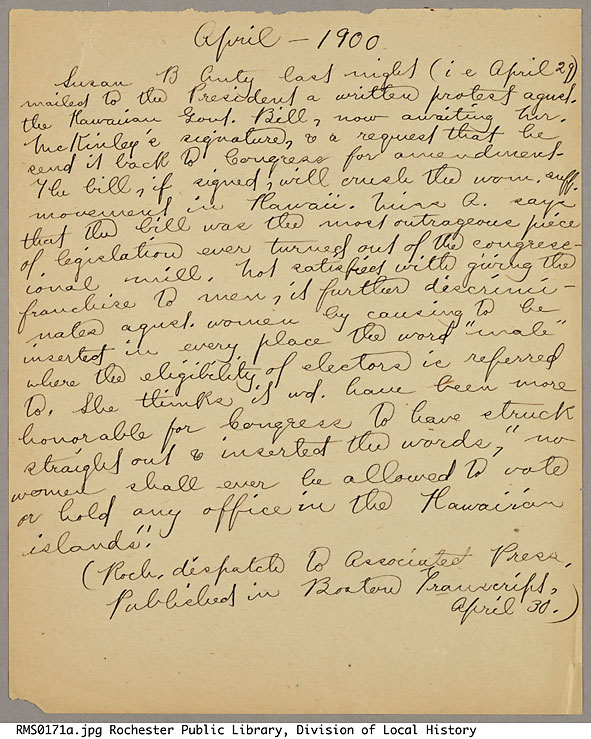 April – 1900
Susan B Anty last night (i e April 29)
mailed to the President a written protest agnst.
the Hawaiian Govt. Bill, now awaiting Mr.
McKinley's signature, & a request that he
send it back to Congress for amendment.
The bill, if signed, will crush the wom. suff.
movement in Hawaii. Miss A. says
that the bill was the most outrageous piece
of legislation ever turned out of the congress-
ional mill. Not satisfied with giving the
franchise to men, it further discrimi-
nates agnst. women by causing to be
inserted in every place the word "male"
where the eligibility of electors is referred
to. She thinks it wd. have been more
honorable for Congress to have struck
straight out & inserted the words, "no
women shall ever be allowed to vote
or hold any office in the Hawaiian
islands".
(Roch. dispatch to Associated Press.
Published in Boston Transcript,
April 30.)
RMS0171a.jpg Rochester Public Library, Division of Local History